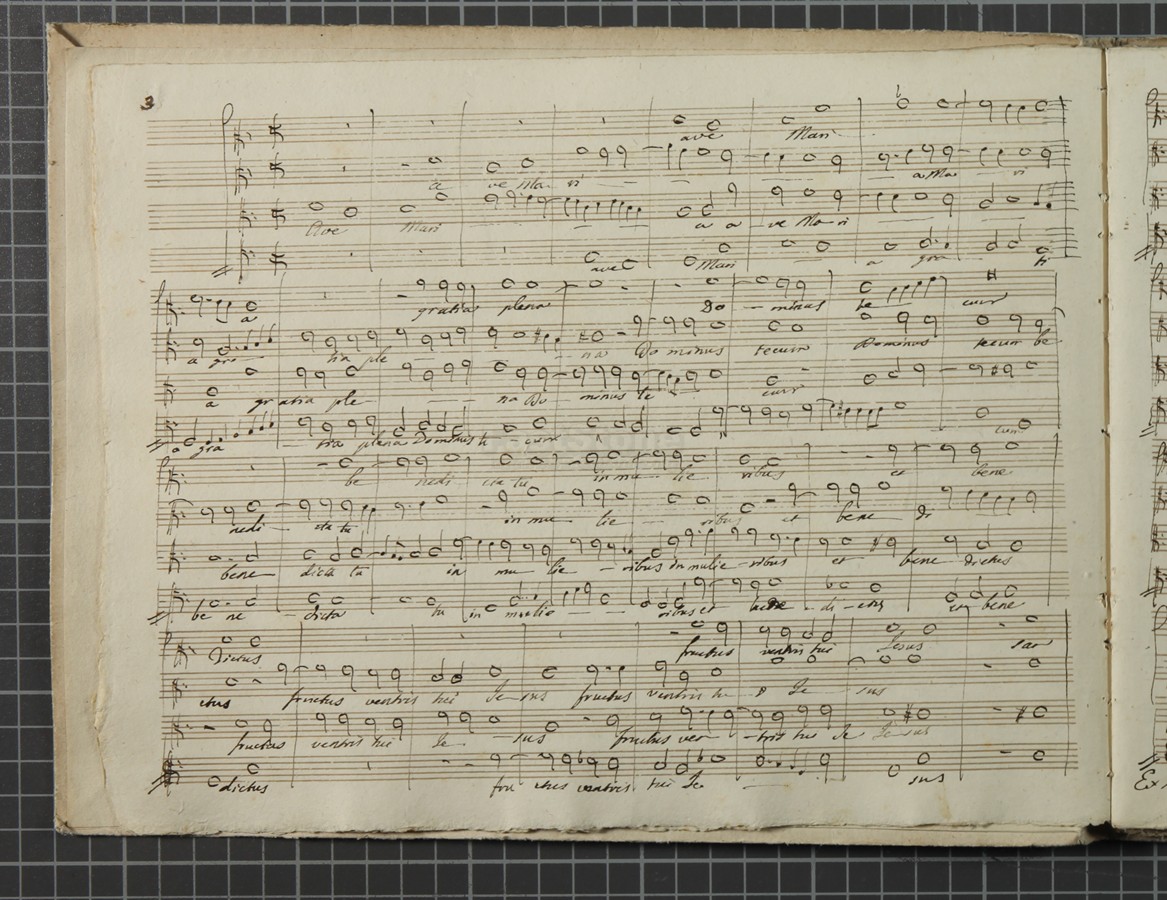 3
ave Mari
a ve Ma ri a Ma ri
Ave Mari a a ve Mari
ave Mari a gra ti
a gratia plena Do minus te cum
a gra tia ple na Dominus tecum Dominus tecum be
a gratia ple na Do minus te cum
a gra tia plena Dominus te cum cum
be nedi cta tu in mu lie ribus et bene
nedi cta tu in mu lie ribus et bene di
bene dicta tu in mu lie ribus in mulie ribus et bene dictus
be ne dicta tu in mulie ribus et bene di ctus et bene
dictus fructus ventris tui Jesus san
ctus fructus ventris tui Je sus fructus ventris tu i Je sus
fructus ventris tui Je sus fructus ven tris tui Je Je sus
dictus fru ctus ventris tui Je sus